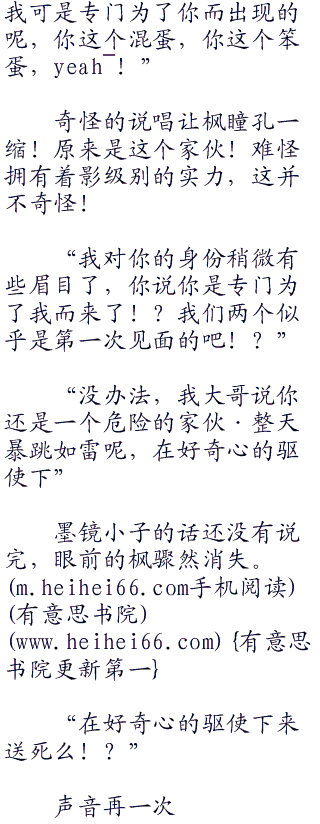 我可是专门为了你而出现的
呢，你这个混蛋，你这个笨
蛋，yeah¯！”
奇怪的说唱让枫瞳孔一
缩！原来是这个家伙！难怪
拥有着影级别的实力，这并
不奇怪！
“我对你的身份稍微有
些眉目了，你说你是专门为
了我而来了！？我们两个似
乎是第一次见面的吧！？”
“没办法，我大哥说你
还是一个危险的家伙·整天
暴跳如雷呢，在好奇心的驱
使下”
墨镜小子的话还没有说
完，眼前的枫骤然消失。
(m.heihei66.com手机阅读)
(有意思书院)
(www.heihei66.com) {有意思
书院更新第一}
“在好奇心的驱使下来
送死么！？”
声音再一次